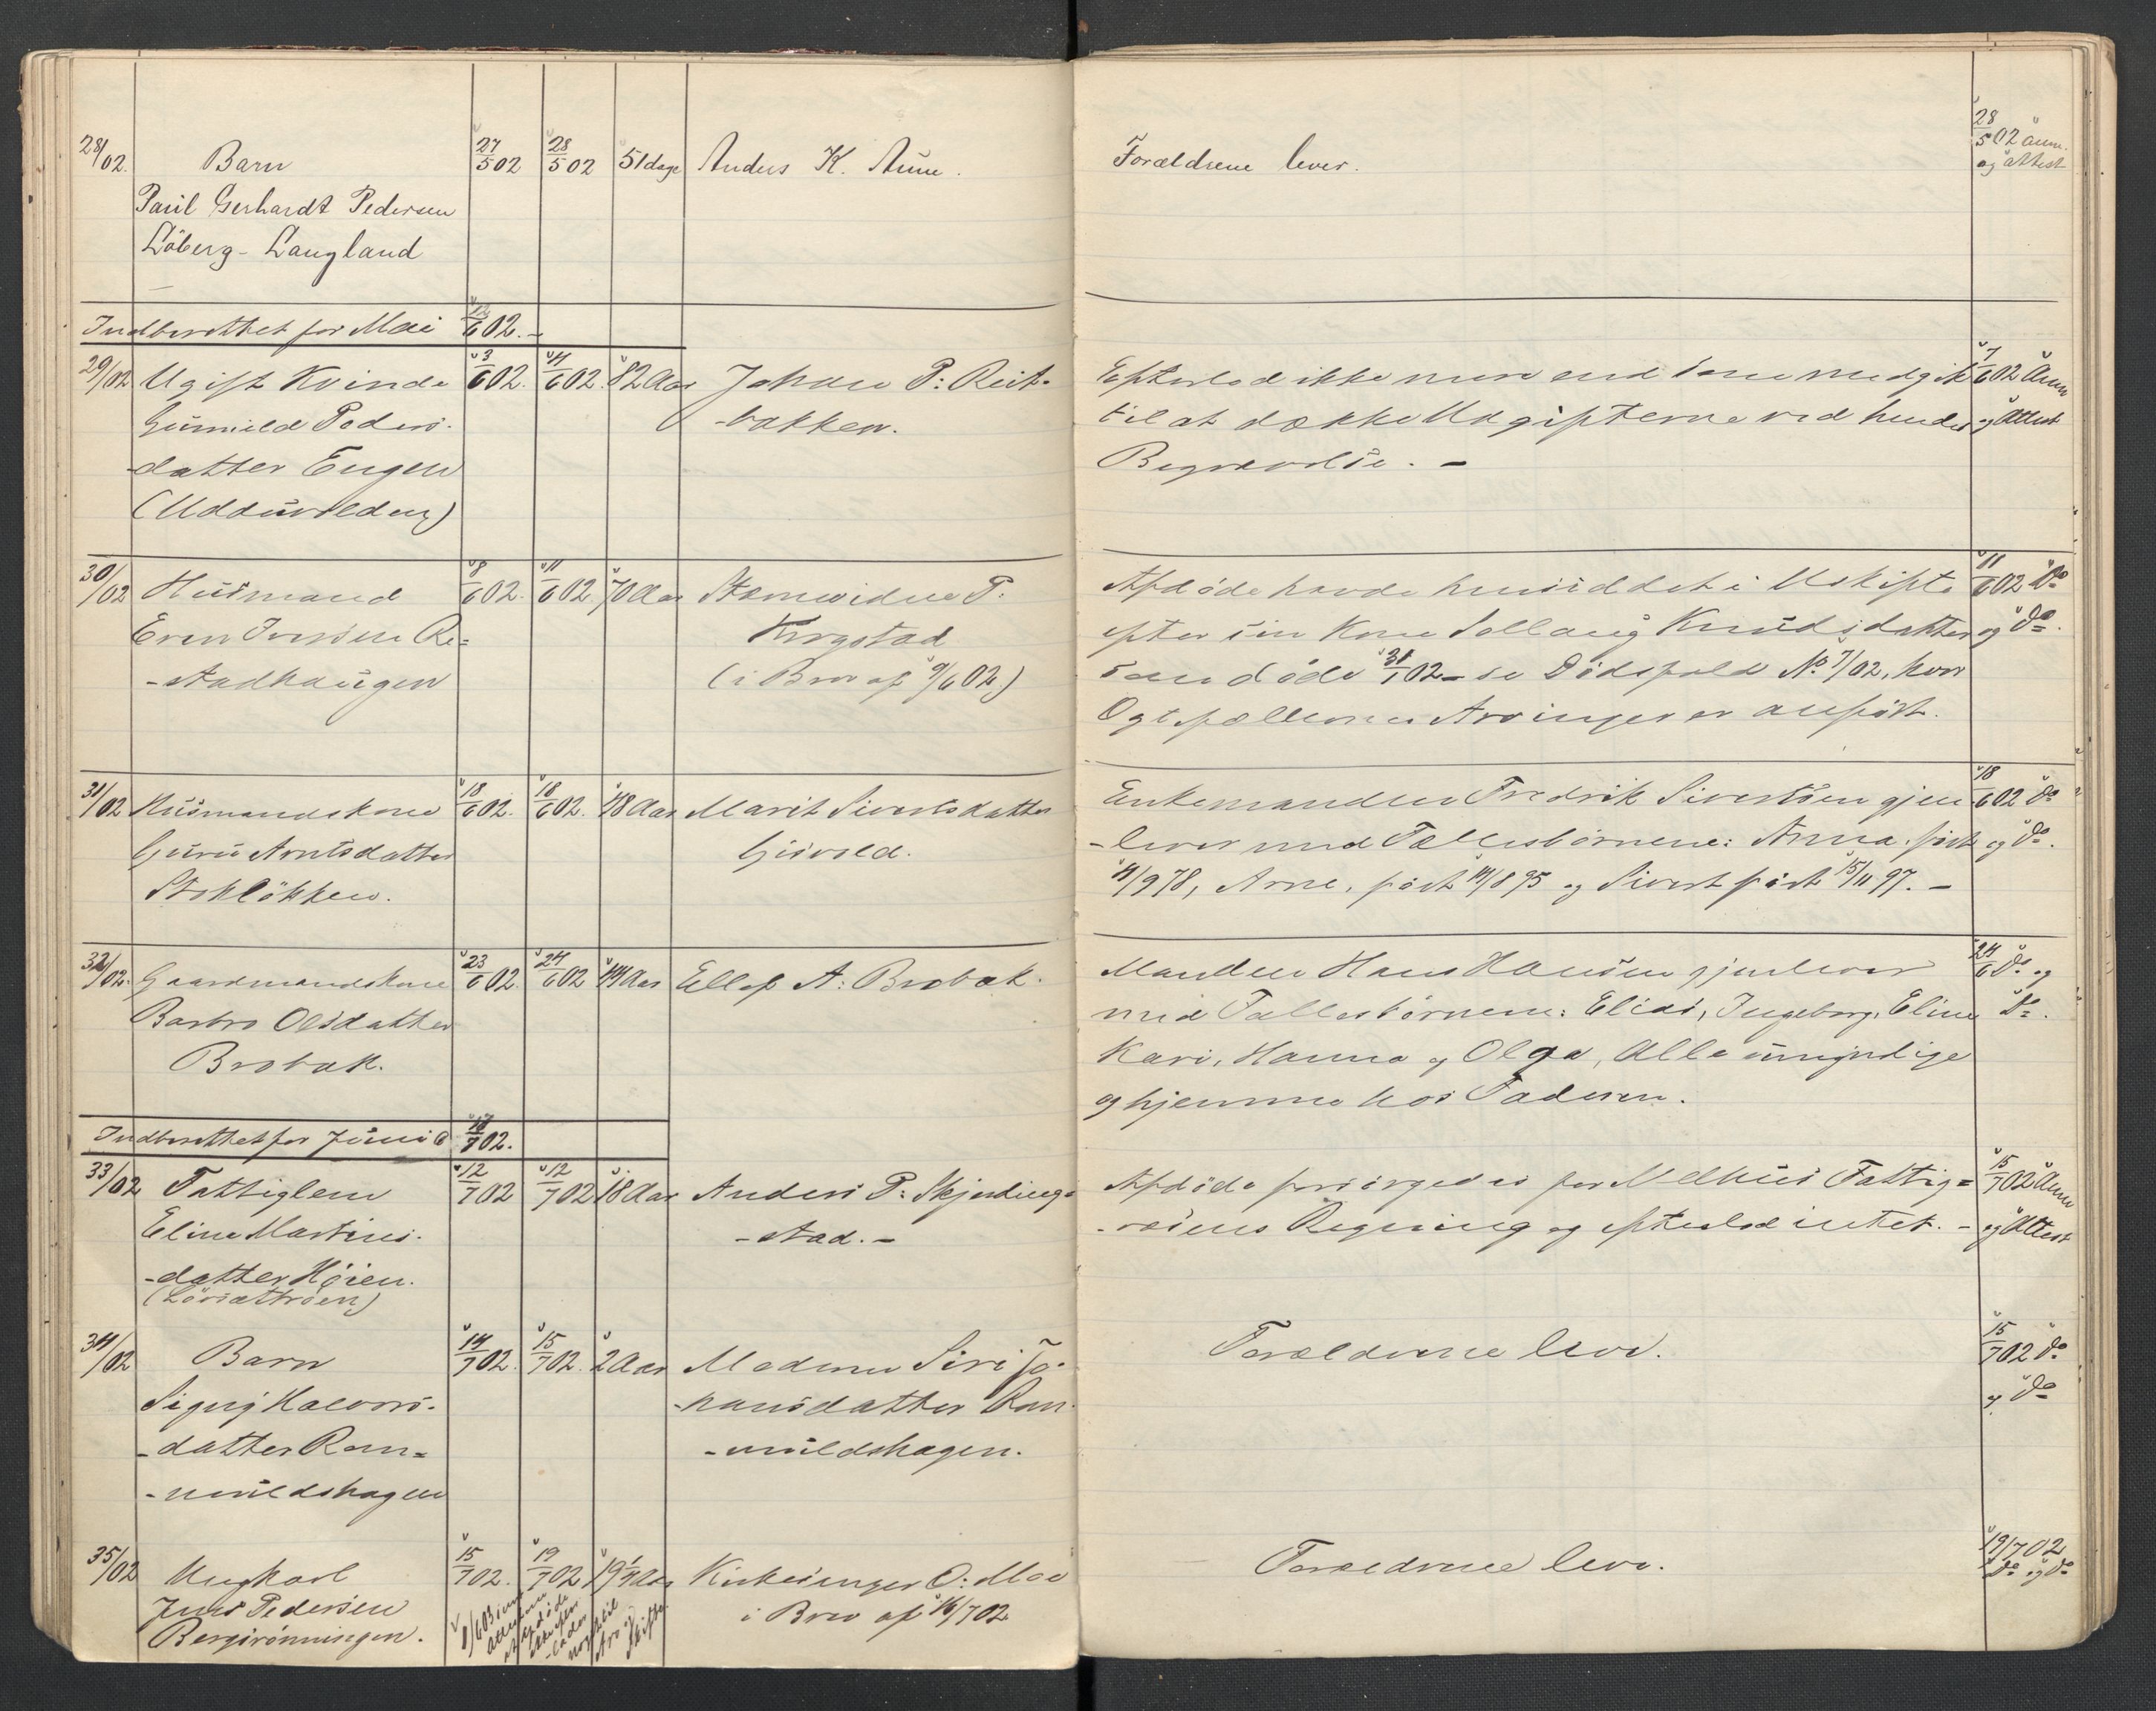 28/02. Barn 27/5 02 28/5 02 51 dage Anders K. Aune. Forældrene lever. 28/5 02 anm.
og attest
Paul Gerhardt Pedersen
Löberg-Langland
Indberettet for Mai 12/6 02.-
29/02 Ugift Kvinde 3/6 02. 4/6 02. 82 Aar Johan P: Reit- Efterlod ikke mere end som medgik 7/6 02 Anm
Gunnild Peders- -bakken. til at dække Udgifterne ved hendes og Attest
-datter Engen Begravelse. -
(Midduvolden)
30/02 Husmand 8/6 02. 11/6 02. 70 Aar Stævnevidne P. Afdøde havde hensiddet i Uskifte 11/6 02 Do
Even Iversen Re= Krogstad efter sin Kone Sollaug Knudsdatter og Do.
-stadhaugen (i Brev af 9/6 02) som døde 31/1 02 - se Dødsfald No 7/02, hvor
Ogtefællernes Arvinger er anført.
31/02 Husmandskone 18/6 02. 18/6 02. 48 Aar Marit Sivertsdatter Enkemanden Fredrik Sivertsen gjen- 18/6 02 Do
Guru Arntsdatter Gisvold. -lever med Fællesbørnene: Anna, født og Do.
Stokløkken. 4/9 78, Arne, født 14/8 95 og Sivert født 15/11 97. -
32/02. Gaardmandskone 23/6 02. 24/6 02 44 Aar Ellef A: Brobak. Manden Hans Hansen gjenlever 24/6 Do og
Barbro Olsdatter med Fællesbørnene: Elias, Ingeborg, Eline Do.
Brobak. Kari, Hanna og Olga, Alle umyndige
og hjemme hos Faderen.
Indberettet for Juni 02.
33/02 Fattiglem 12/7 02 12/7 02 18 Aar Anders P: Skjerdings- Afdøde forsørgedes for Melhus Fattig= 15/7 02 Anm
Eline Martins- -stad. - -væsens Regning og efterlod intet. - og Attest
-datter Høien.
(Løvsættrøen)
34/02 Barn 14/7 02. 15/7 02. 2 Aar Moderen Siri Jo- Forældrene lever. 15/7 02 Do
Signy Halvors- -hansdatter Ram- og Do
-datter Ram= -muldshagen.
-muldshagen
35/02 Ungkarl 15/7 02. 19/7 02 19 1/4 Aar Kirkesanger O: Moe Forældrene lever. 19/7 02
Jens Pedersen i Brev af 16/7 02. Do og Do
Bergsrønningen.